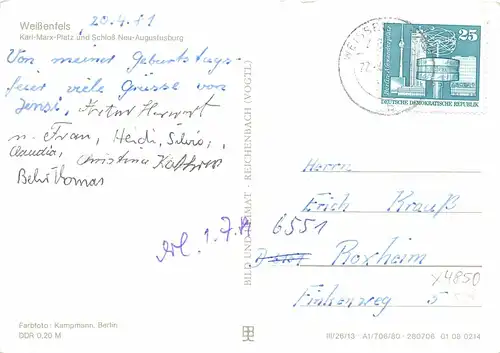 Weißenfels
20.4.81
Karl-Marx-Platz und Schloß Neu-Augustusburg
Von meiner Geburtstags-
feier viele Grüsse von
Jensi, Artur Herwart
u. Frau, Heidi, Silvio,
Claudia, Christina Kathrin
Thomas
BILD UND HEIMAT · REICHENBACH (VOGTL)
25
Berlin - Alexanderplatz
DEUTSCHE DEMOKRATISCHE REPUBLIK
Herrn
Erich Krauß
6551
Roxheim
Finkenweg 5
erl. 1.7.81
x4850
Farbfoto: Kampmann, Berlin
DDR 0,20 M
III/26/13 · A1/706/80 · 280706 01 08 0214